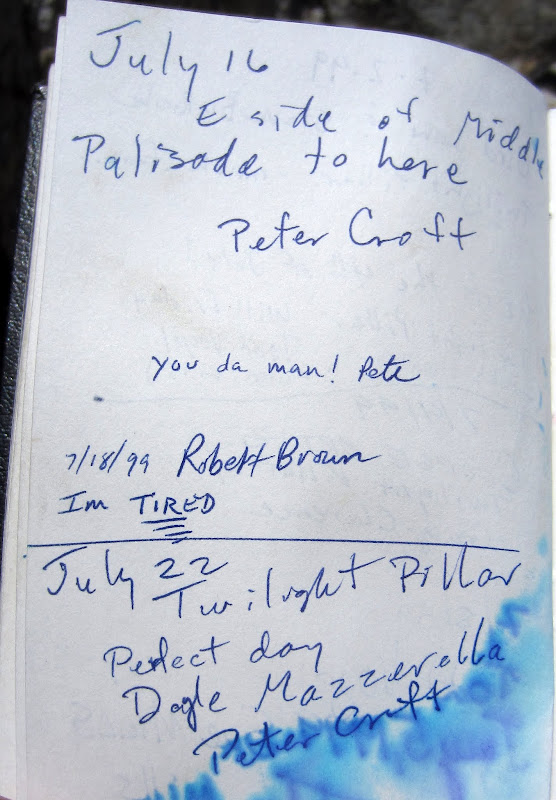 July 16
E side of Middle
Palisade to here
Peter Croft
you da man! Pete
7/18/99 Robert Brown
Im TIRED
July 22
Twilight Pillar
Perfect day
Dayle Mazzarella
Peter Croft